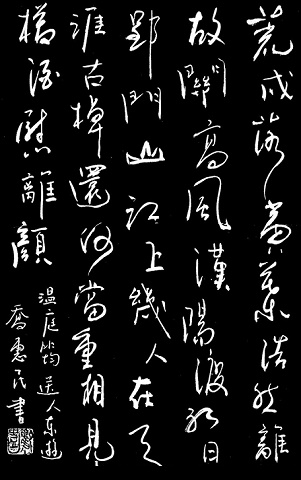 荒戍落黄葉浩然離
故關高風漢陽渡初日
郢門山江上幾人在天
涯古棹還何當重相見
樽酒慰離顏
温庭筠送人东遊
喬惠民書